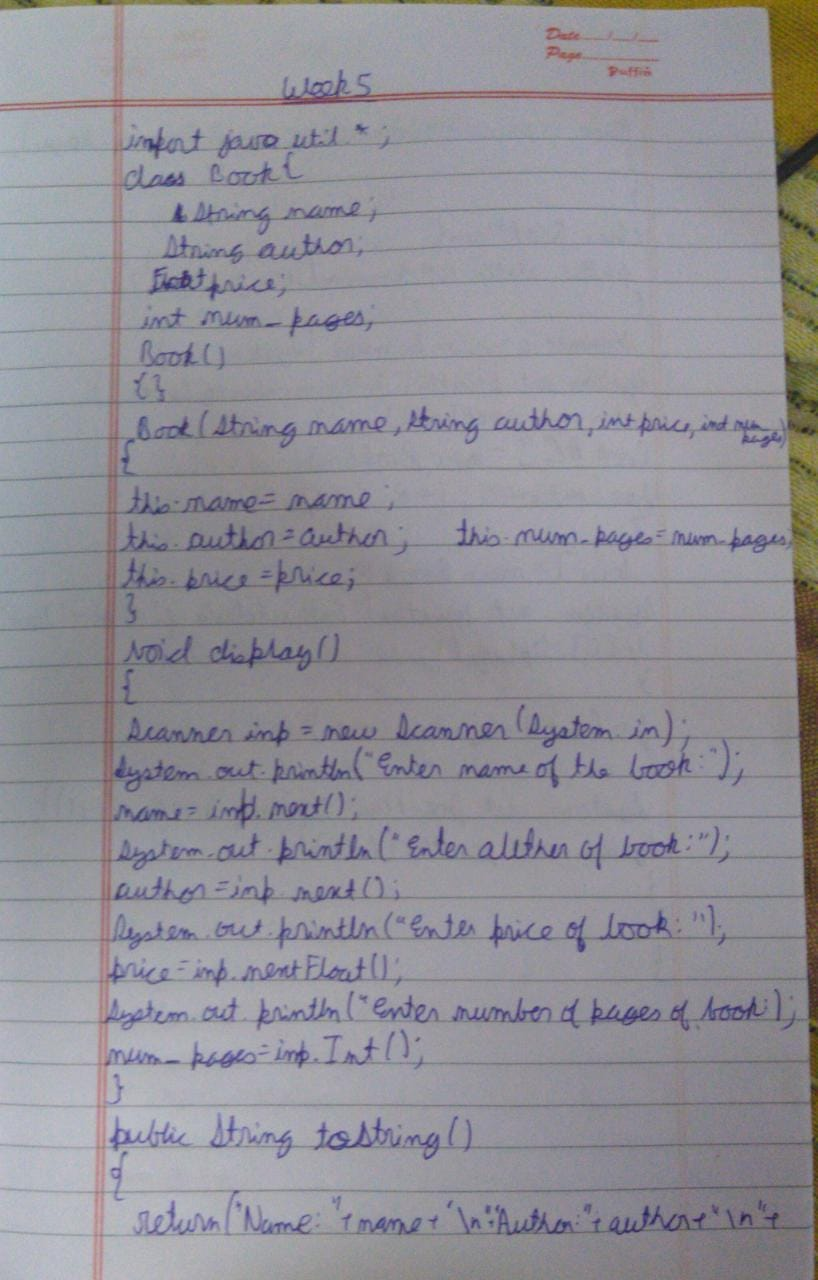 Date___/___/___
Page___
Puffin
Week 5
import java util.*;
class Book{
String name;
String author;
price;
int num_pages;
Book()
{}
Book(String name, String author, int price, int num_pages)
{
this.name= name;
this.author=author; this.num_pages=num_pages;
this.price=price;
}
void display()
{
Scanner inp = new Scanner(System.in);
System.out.println("Enter name of the book:");
name= inp.next();
System.out.println("Enter auther of book:");
author=inp.next();
System.out.println("Enter price of book:");
price=inp.nextFloat();
System.out.println("Enter number of pages of book:);
num_pages=inp.Int();
}
public String toString()
{
return("Name: "+name+"\n"+"Author:"+author+"\n"+